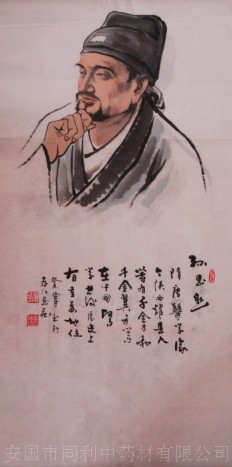 孙思邈
隋唐醫学家
今陕西耀县人
著有千金方和
千金翼方等
在中国醫
学史上
有重要地位
安国市同利中药材有限公司